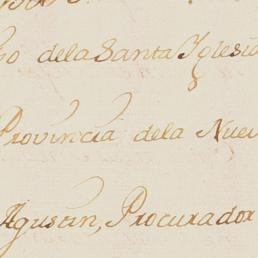 dela Santa Iglesia
Provincia dela Nuev
Agustin, Procurador